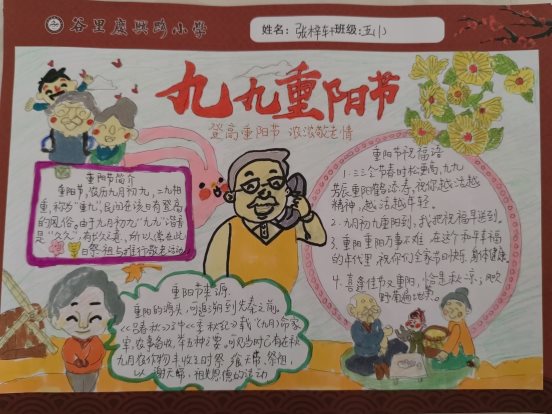 谷里庆兴路小学
姓名：张梓轩班级：五(1)
九九重阳节
登高重阳节 浓浓敬老情
重阳节简介
重阳节，农历九月初九，二九相
重，称为"重九"，民间在该日有登高
的风俗。由于九月初九"九九"谐音
是"久久"，有长久之意，所以常在此日
祭祖与推行敬老活动。
重阳节来源
重阳的源头，可追溯到先秦之前。
《吕春秋》之中《季秋纪》载(九月)命家
宰，农事备收，举五种之要，可见当时已有在秋
九月农作物丰收之时祭飨天帝、祭祖，
以谢天帝、祖先恩德的活动
重阳节祝福语
1.三三令节春时松更高，九九
芳辰重阳鹤添寿，祝你越活越
精神，越活越年轻。
2.九月初九重阳到，我把祝福早送到。
3.重阳重阳万事不难，在这个和平幸福
的年代里，祝你们全家节日快乐，身体健康
4.喜逢佳节又重阳，恰是秋凉；
野菊遍地